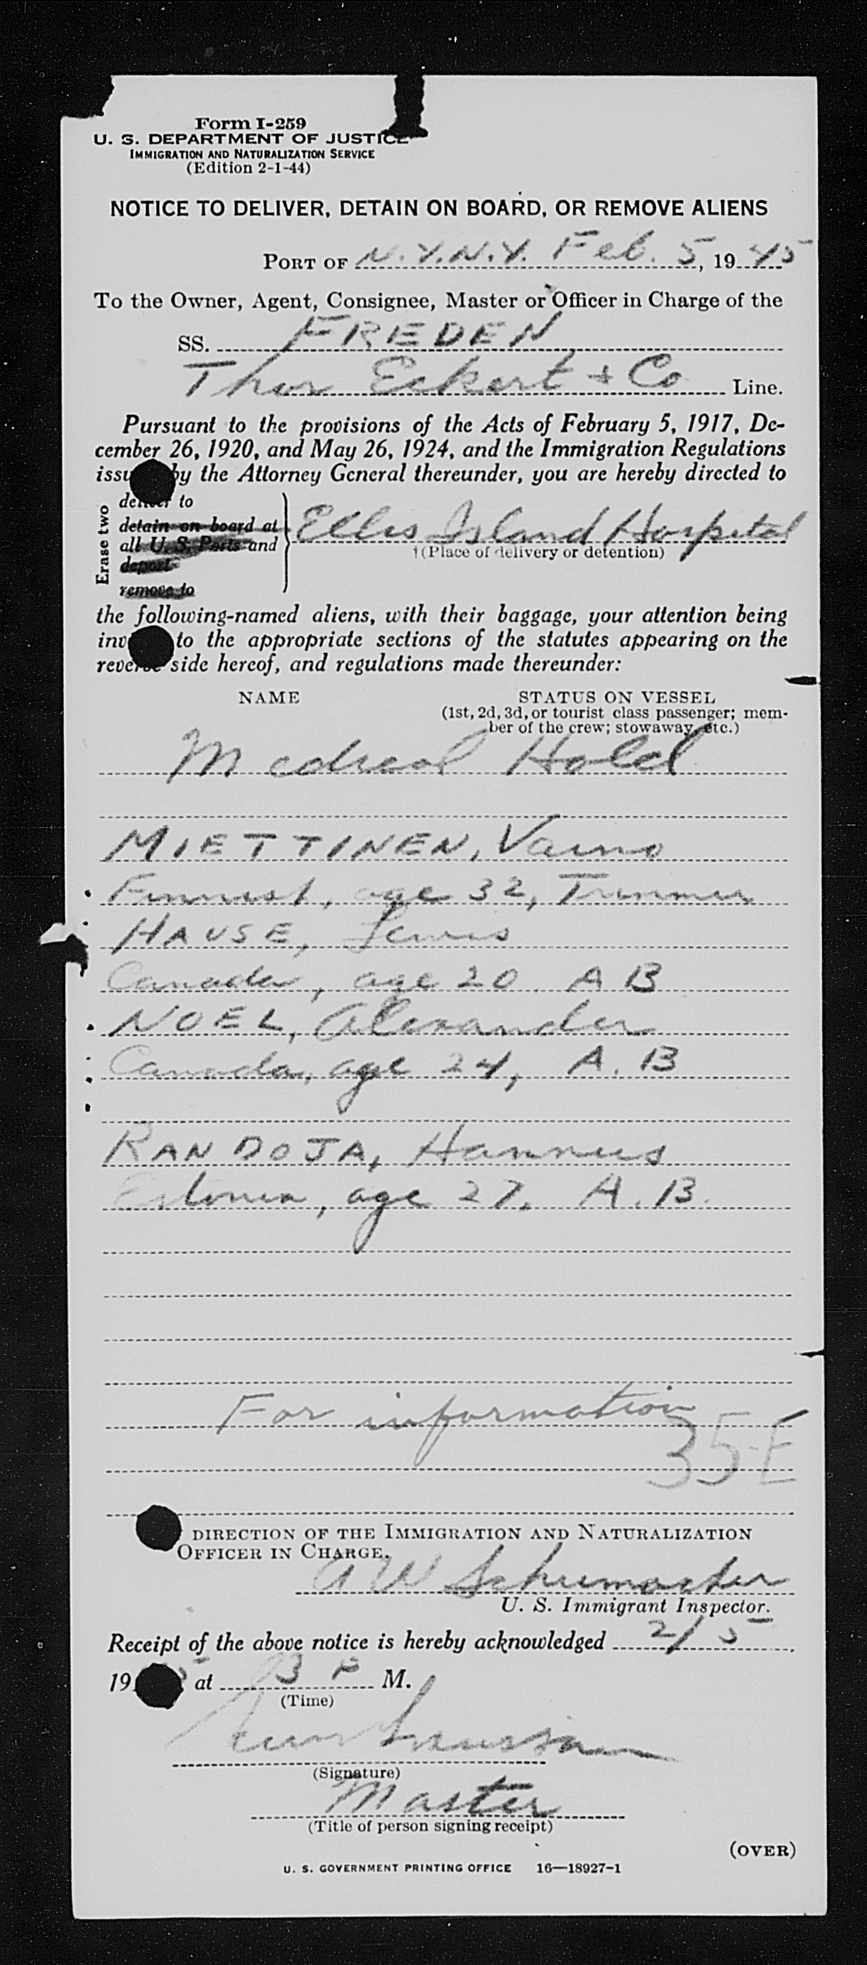 Form I-259
U. S. DEPARTMENT OF JUSTICE
IMMIGRATION AND NATURALIZATION SERVICE
(Edition 2-1-44)
NOTICE TO DELIVER, DETAIN ON BOARD, OR REMOVE ALIENS
PORT OF N.Y.N.Y. Feb. 5, 1945
To the Owner, Agent, Consignee, Master or Officer in Charge of the
SS. FREDEN
Thor Eckert + Co Line.
Pursuant to the provisions of the Acts of February 5, 1917, De-
cember 26, 1920, and May 26, 1924, and the Immigration Regulations
issu by the Attorney General thereunder, you are hereby directed to
Erase two
deliver to
detain on board at
all U. S. Ports and
deport
remove to
Ellis Island Hospital
†(Place of delivery or detention)
the following-named aliens, with their baggage, your attention being
inv to the appropriate sections of the statutes appearing on the
reverse side hereof, and regulations made thereunder:
NAME STATUS ON VESSEL
(1st, 2d, 3d, or tourist class passenger; mem-
ber of the crew; stowaway, etc.)
Medical Hold
MIETTINEN, Vaino
Finnish, age 32, Trimmer
HAUSE, Lewis
Canada, age 20. AB
NOEL, Alexander
Canada, age 24, A.B
RANDOJA, Hannus
Estonia, age 27. A.B.
For information
35-E
DIRECTION OF THE IMMIGRATION AND NATURALIZATION
OFFICER IN CHARGE.
A W Schumacher
U. S. Immigrant Inspector.
Receipt of the above notice is hereby acknowledged 2/5
19 5 at 3 P M.
(Time)
(Signature)
Master
(Title of person signing receipt)
(OVER)
U. S. GOVERNMENT PRINTING OFFICE 16—18927-1